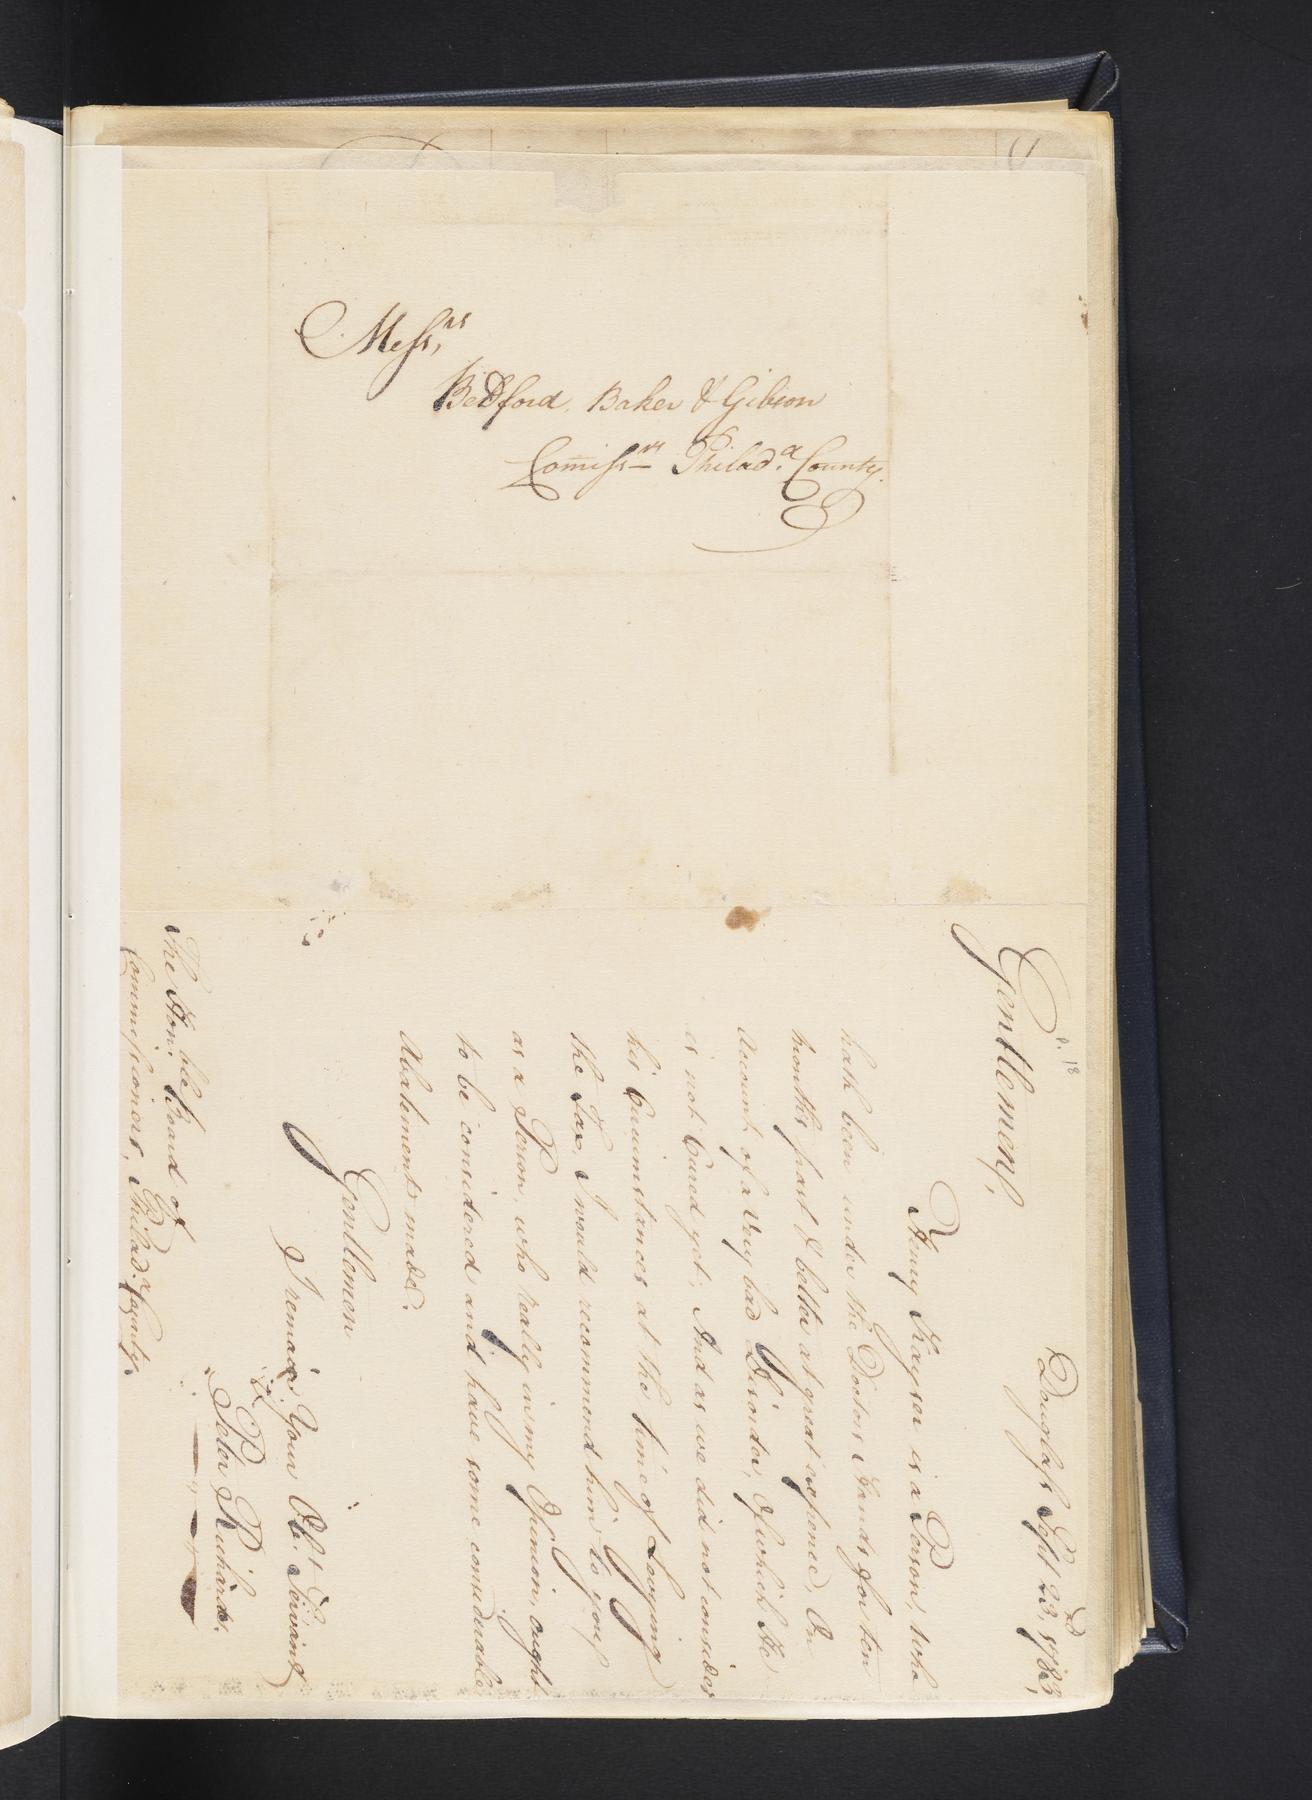 Messrs,
Bedford, Baker & Gibson
Comissrs Philada. County.
p. 18
Douglass Sept 23d, 1783,
Gentlemen,
Henry Kayser is a Person, who
hath been under the Doctors Hands for ten
months past & better at great expence, On
Account of a Very bad Disorder, Of which He
is not Cured yet; And as we did not consider
his Cuicumstances at the time of Laying
the Tax, I would recommend him to you,
as a Person, who really in my Opinion, ought
to be considered and have some considerable
Abatements made.
Gentlemen
I remain Your Obt. Servant
Peter Richards.
The Hon:ble Board of
Commissioners, Philad:a County.